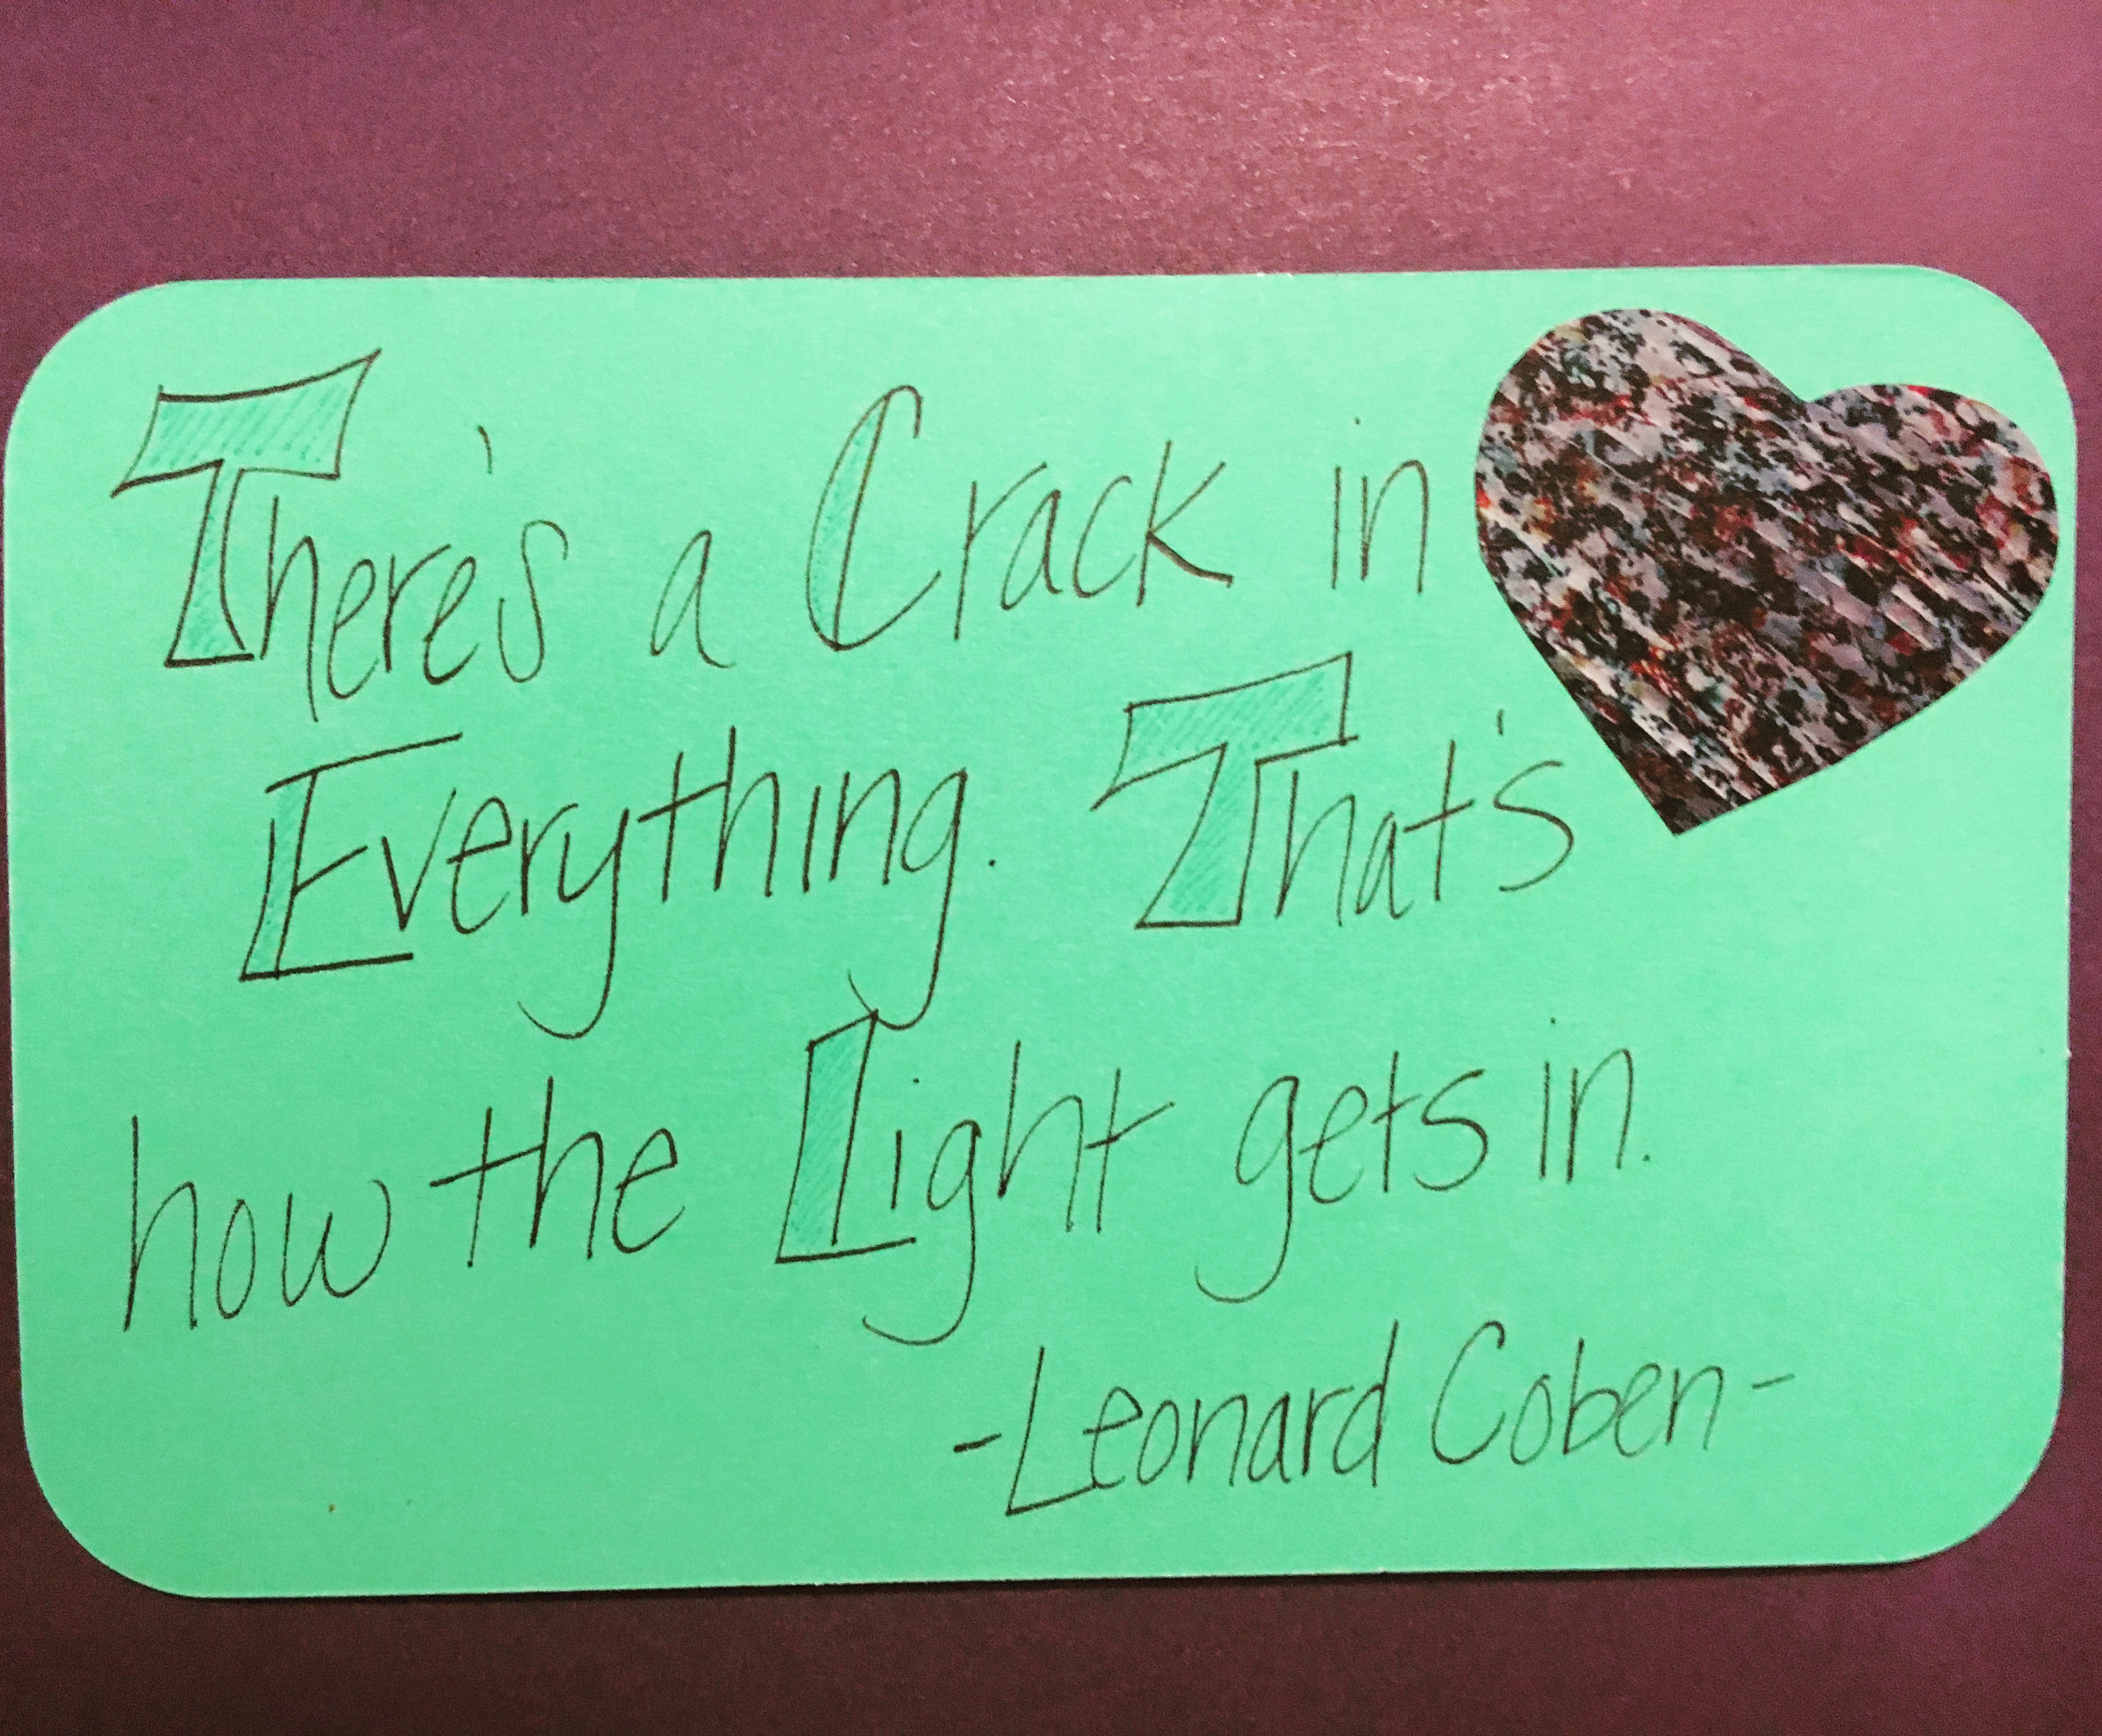 There's a Crack in
Everything. That's
how the Light gets in.
-Leonard Coben-